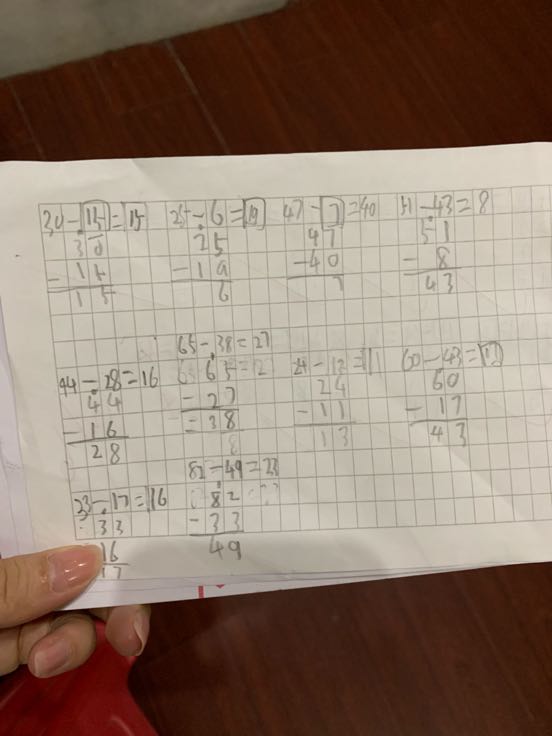 30-15=15
30
-15
15
25-6=19
25
-19
6
47-7=40
47
-40
7
51-43=8
51
-8
43
44-28=16
44
-16
28
65-38=27
65
-27
=38
24-
24
-11
13
60-43=17
60
-17
43
33-17=16
33
16
17
82-49=
82
-33
49